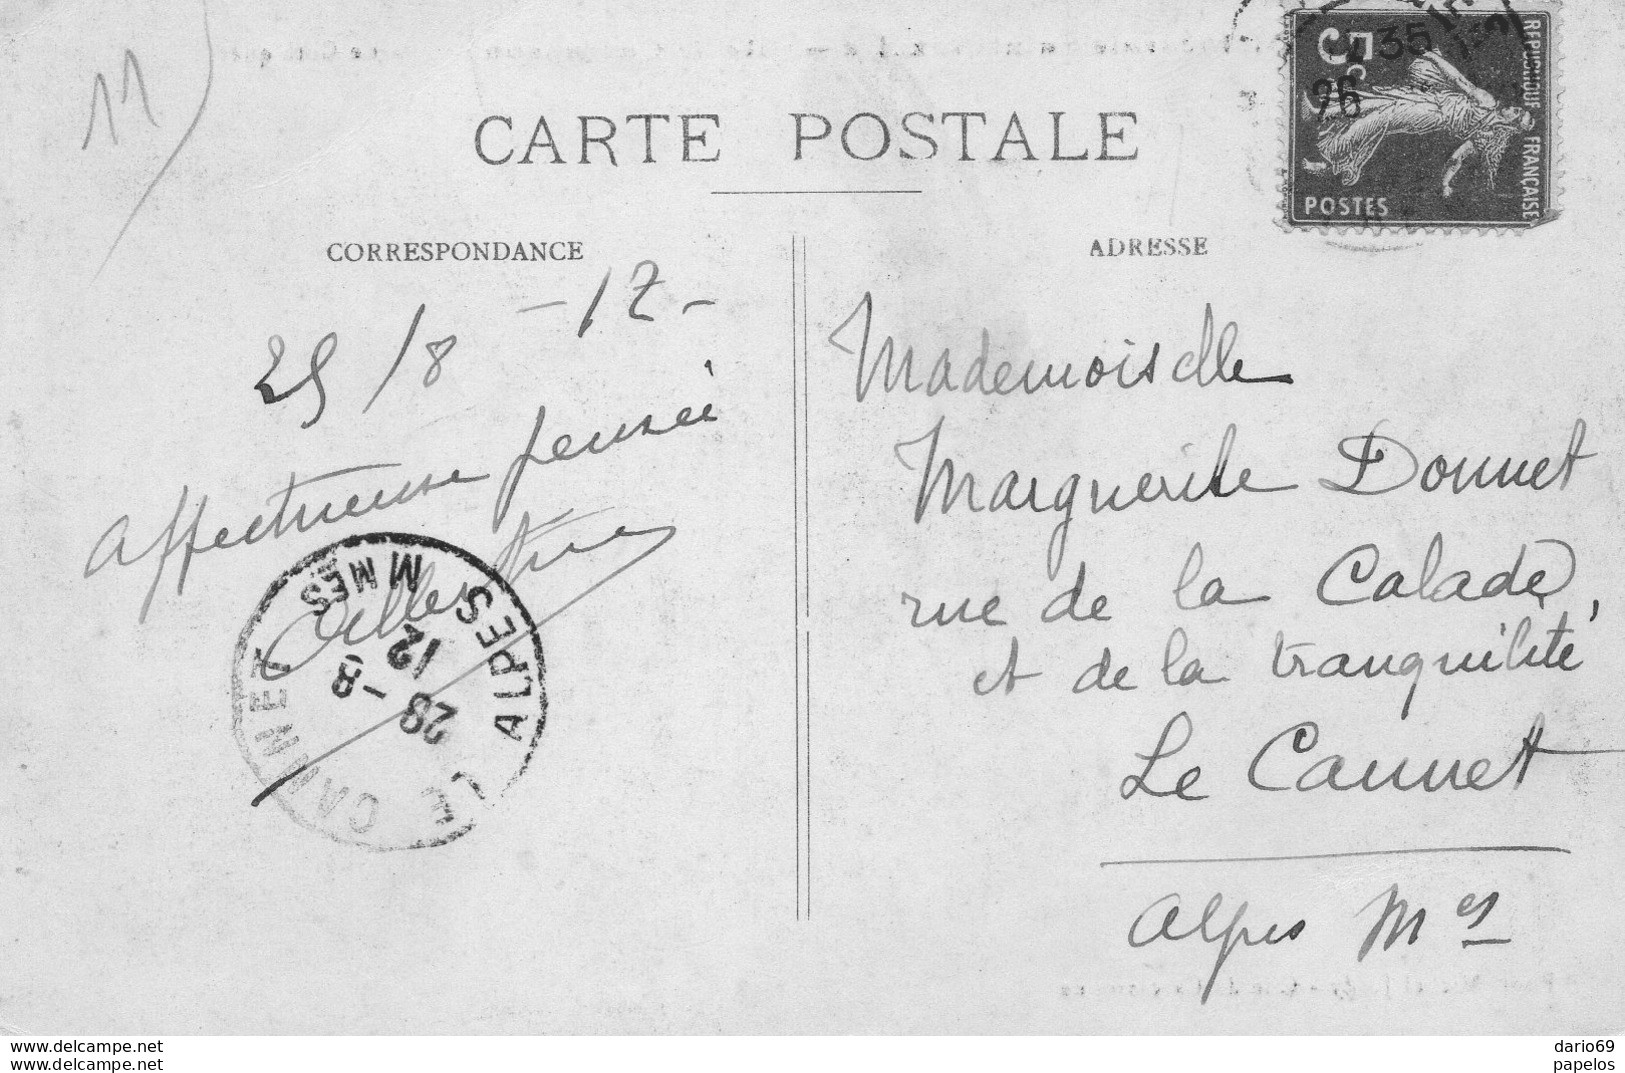 11
CARTE POSTALE
CORRESPONDANCE
25/8 -12-
Affectueuse pensée
LE CANNET
ALPES MMES
28 -8
12
ADRESSE
Mademoiselle
Marguerite Donnet
rue de la Calade,
et de la tranquilité
Le Cannet
Alpes Mes
35
26
5
REPUBLIQUE FRANÇAISE
POSTES
www.delcampe.net
www.delcampe.net
dario69
papelos